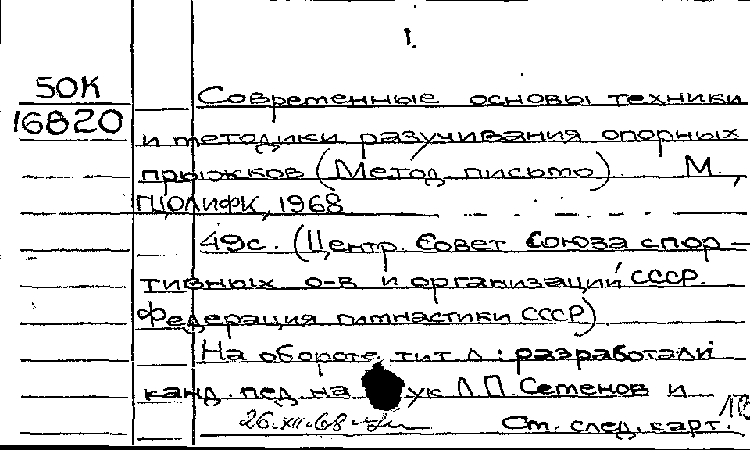 1.
50К
16820
Современные основы техники
и методики разучивания опорных
прыжков (Метод. письмо). М.,
ГЦОЛИФК, 1968
49с. (Центр. Совет Союза спор-
тивных о-в и организаций СССР.
Федерация гимнастики СССР)
На обороте тит. л.: разработали
канд. пед. наук Л.П. Семенов и
26.XII.68
См. след. карт.